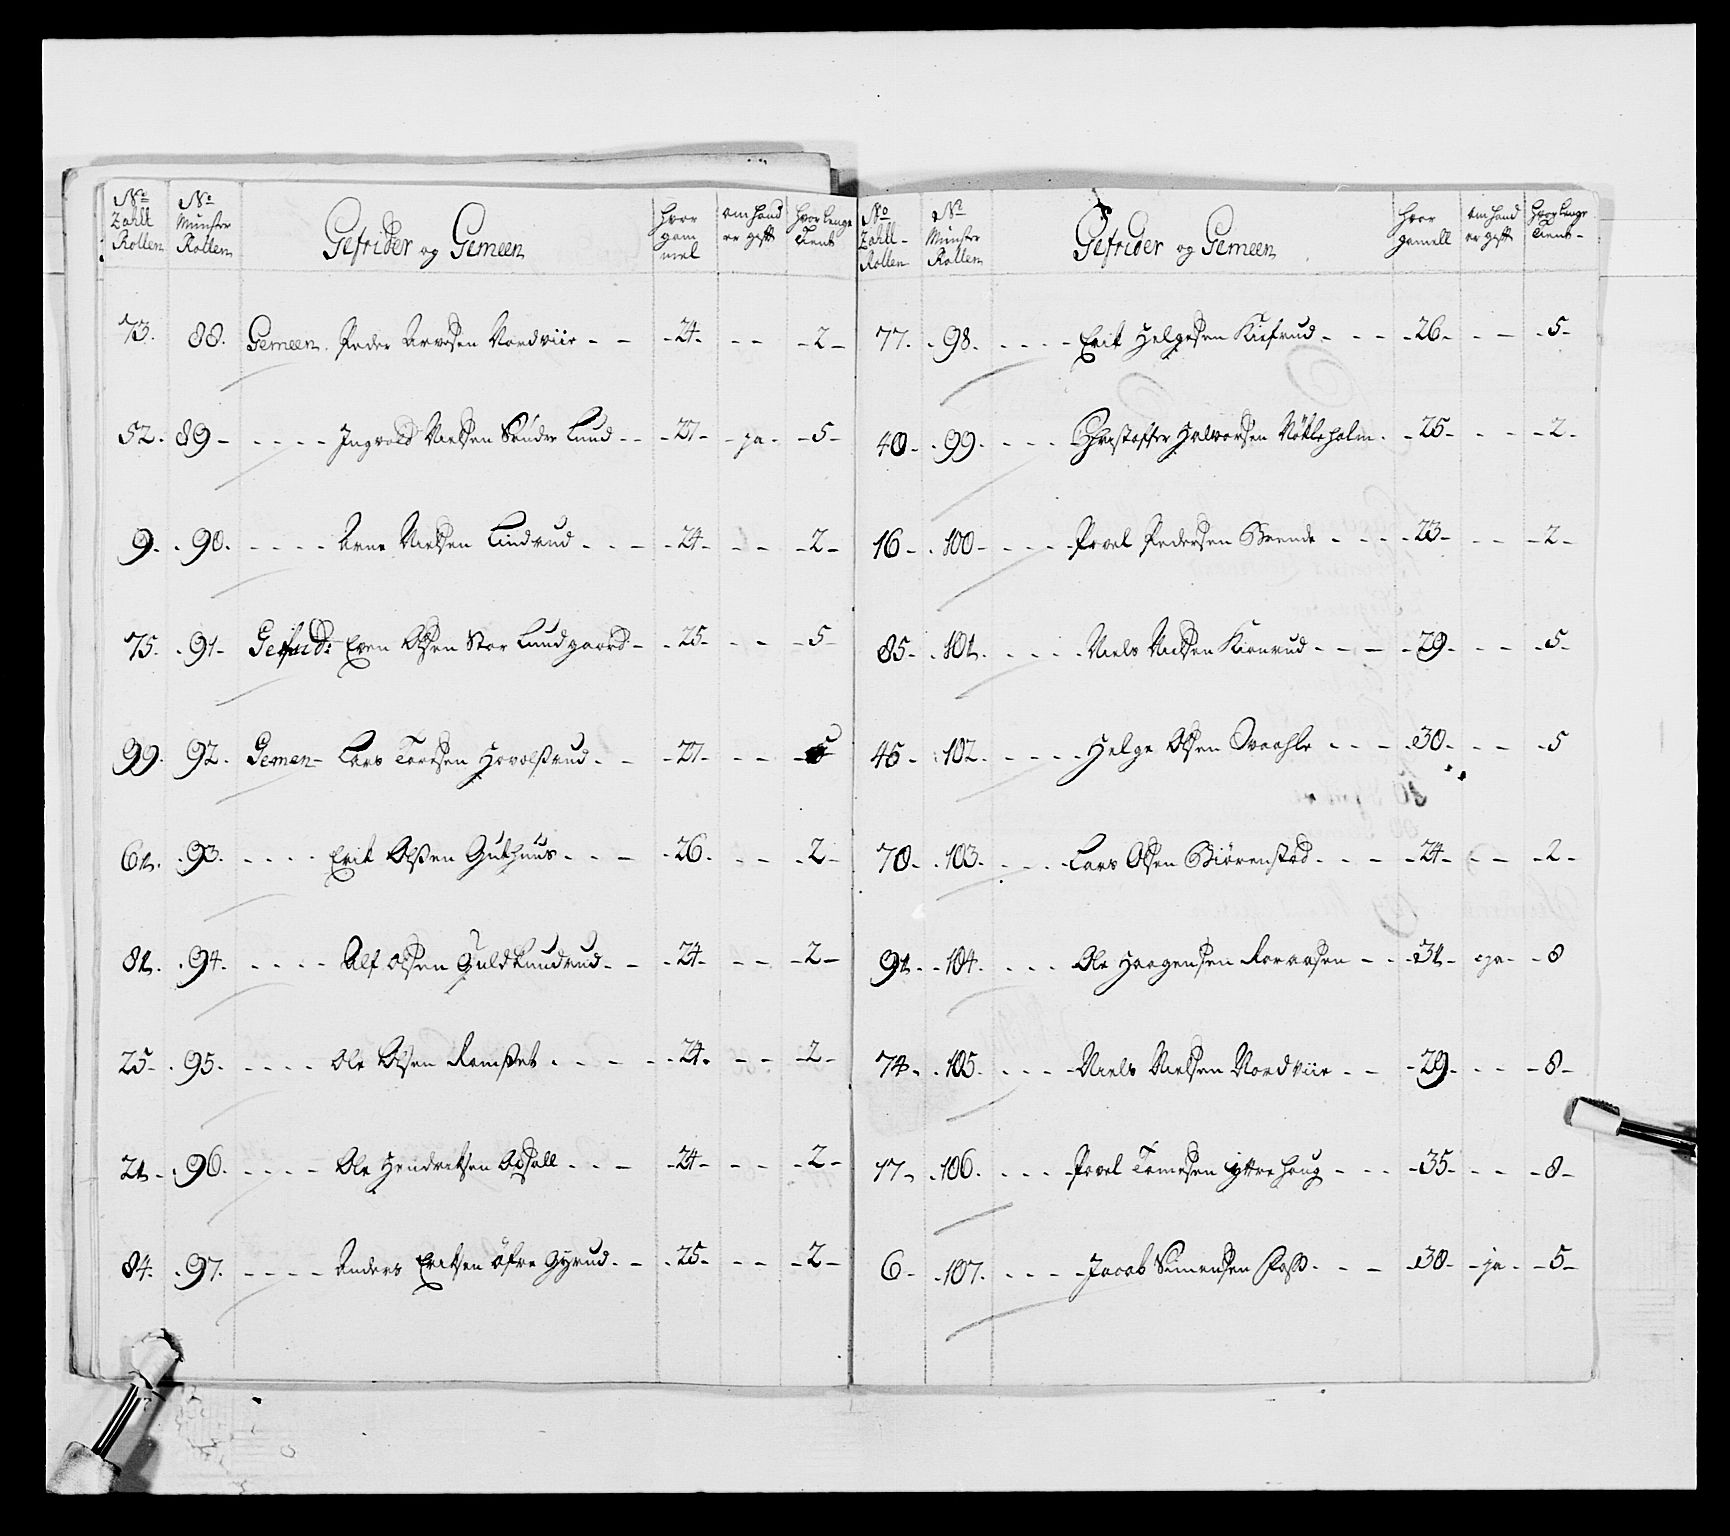 No Zahll Rollen | No Münster Rollen | Gefrider og Gemeen | hvor gam mel | om hand er gift | hvor lenge Tient
73. 88. Gemeen. Peder Arvesen Nordviie - - -24- - - -2-
52. 89 - - - - - Ingvold Nielsen Sönder Lund - - -27- - ja - -5-
9. 90. - - - - Arne Nielsen Lindrud - - - -24- - - -2-
75. 91- Gefrid: Even Olsen Stor Lundgaard - -25- - - -5-
99. 92. Gemen- Lars Toresen Hovolsrud - - -27- - -
61. 93. - - - - Erik Olsen Guthuus - - - -26. - - -2-
81. 94. - - - - Alf Olsen Guldkundrud - - -24- - - -2-
25- 95. - - - - Ole Olsen Ramset - - - - -24. - - -2-
21 - 96. - - - - Ole Hendriksen Opsall - - - -24- - - -2-
84. 97. - - - - Anders Eriksen öfre Gyrud - - -25- - - -2-
No Zahll- Rollen | No Münster Rollen | Gefrider og Gemeen | hvor gamell | om hand er gift | hvor lenge Tient-
77. 98. - - - - Erik Helgesen Kiefrud - - - -26- - - -5-
40- 99. - - - - Christoffer Halvorsen Nökleholm - -25- - - -2-
16- 100 - - - - Povel Pedersen Brende - - - -23- - - -2-
85- 101. - - - - Niels Nielsen Kionrud - - - -29- - - -5-
45- 102. - - - - Helge Olsen Svaahle - - - -30- - - -5
70- 103. - - - - Lars Olsen Biörenstad - - - -24- - - -2-
91- 104. - - - - Ole Haagensen Foraasen - - -31- -ja- -8
74- 105. - - - - Niels Nielsen Nordviie - - -29- - - -8-
17- 106. - - - - Povel Tomesen yttre Houg - - - -35- - - -8-
6- 107. - - - - Jacob Simensen Foss - - - -30- -ja- -5-